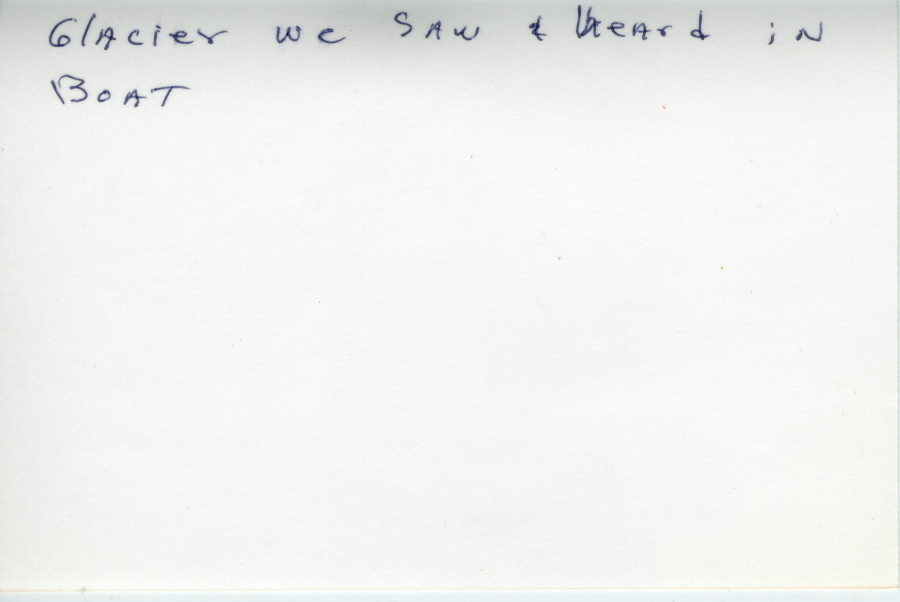 Glacier we SAW & heard in
BOAT